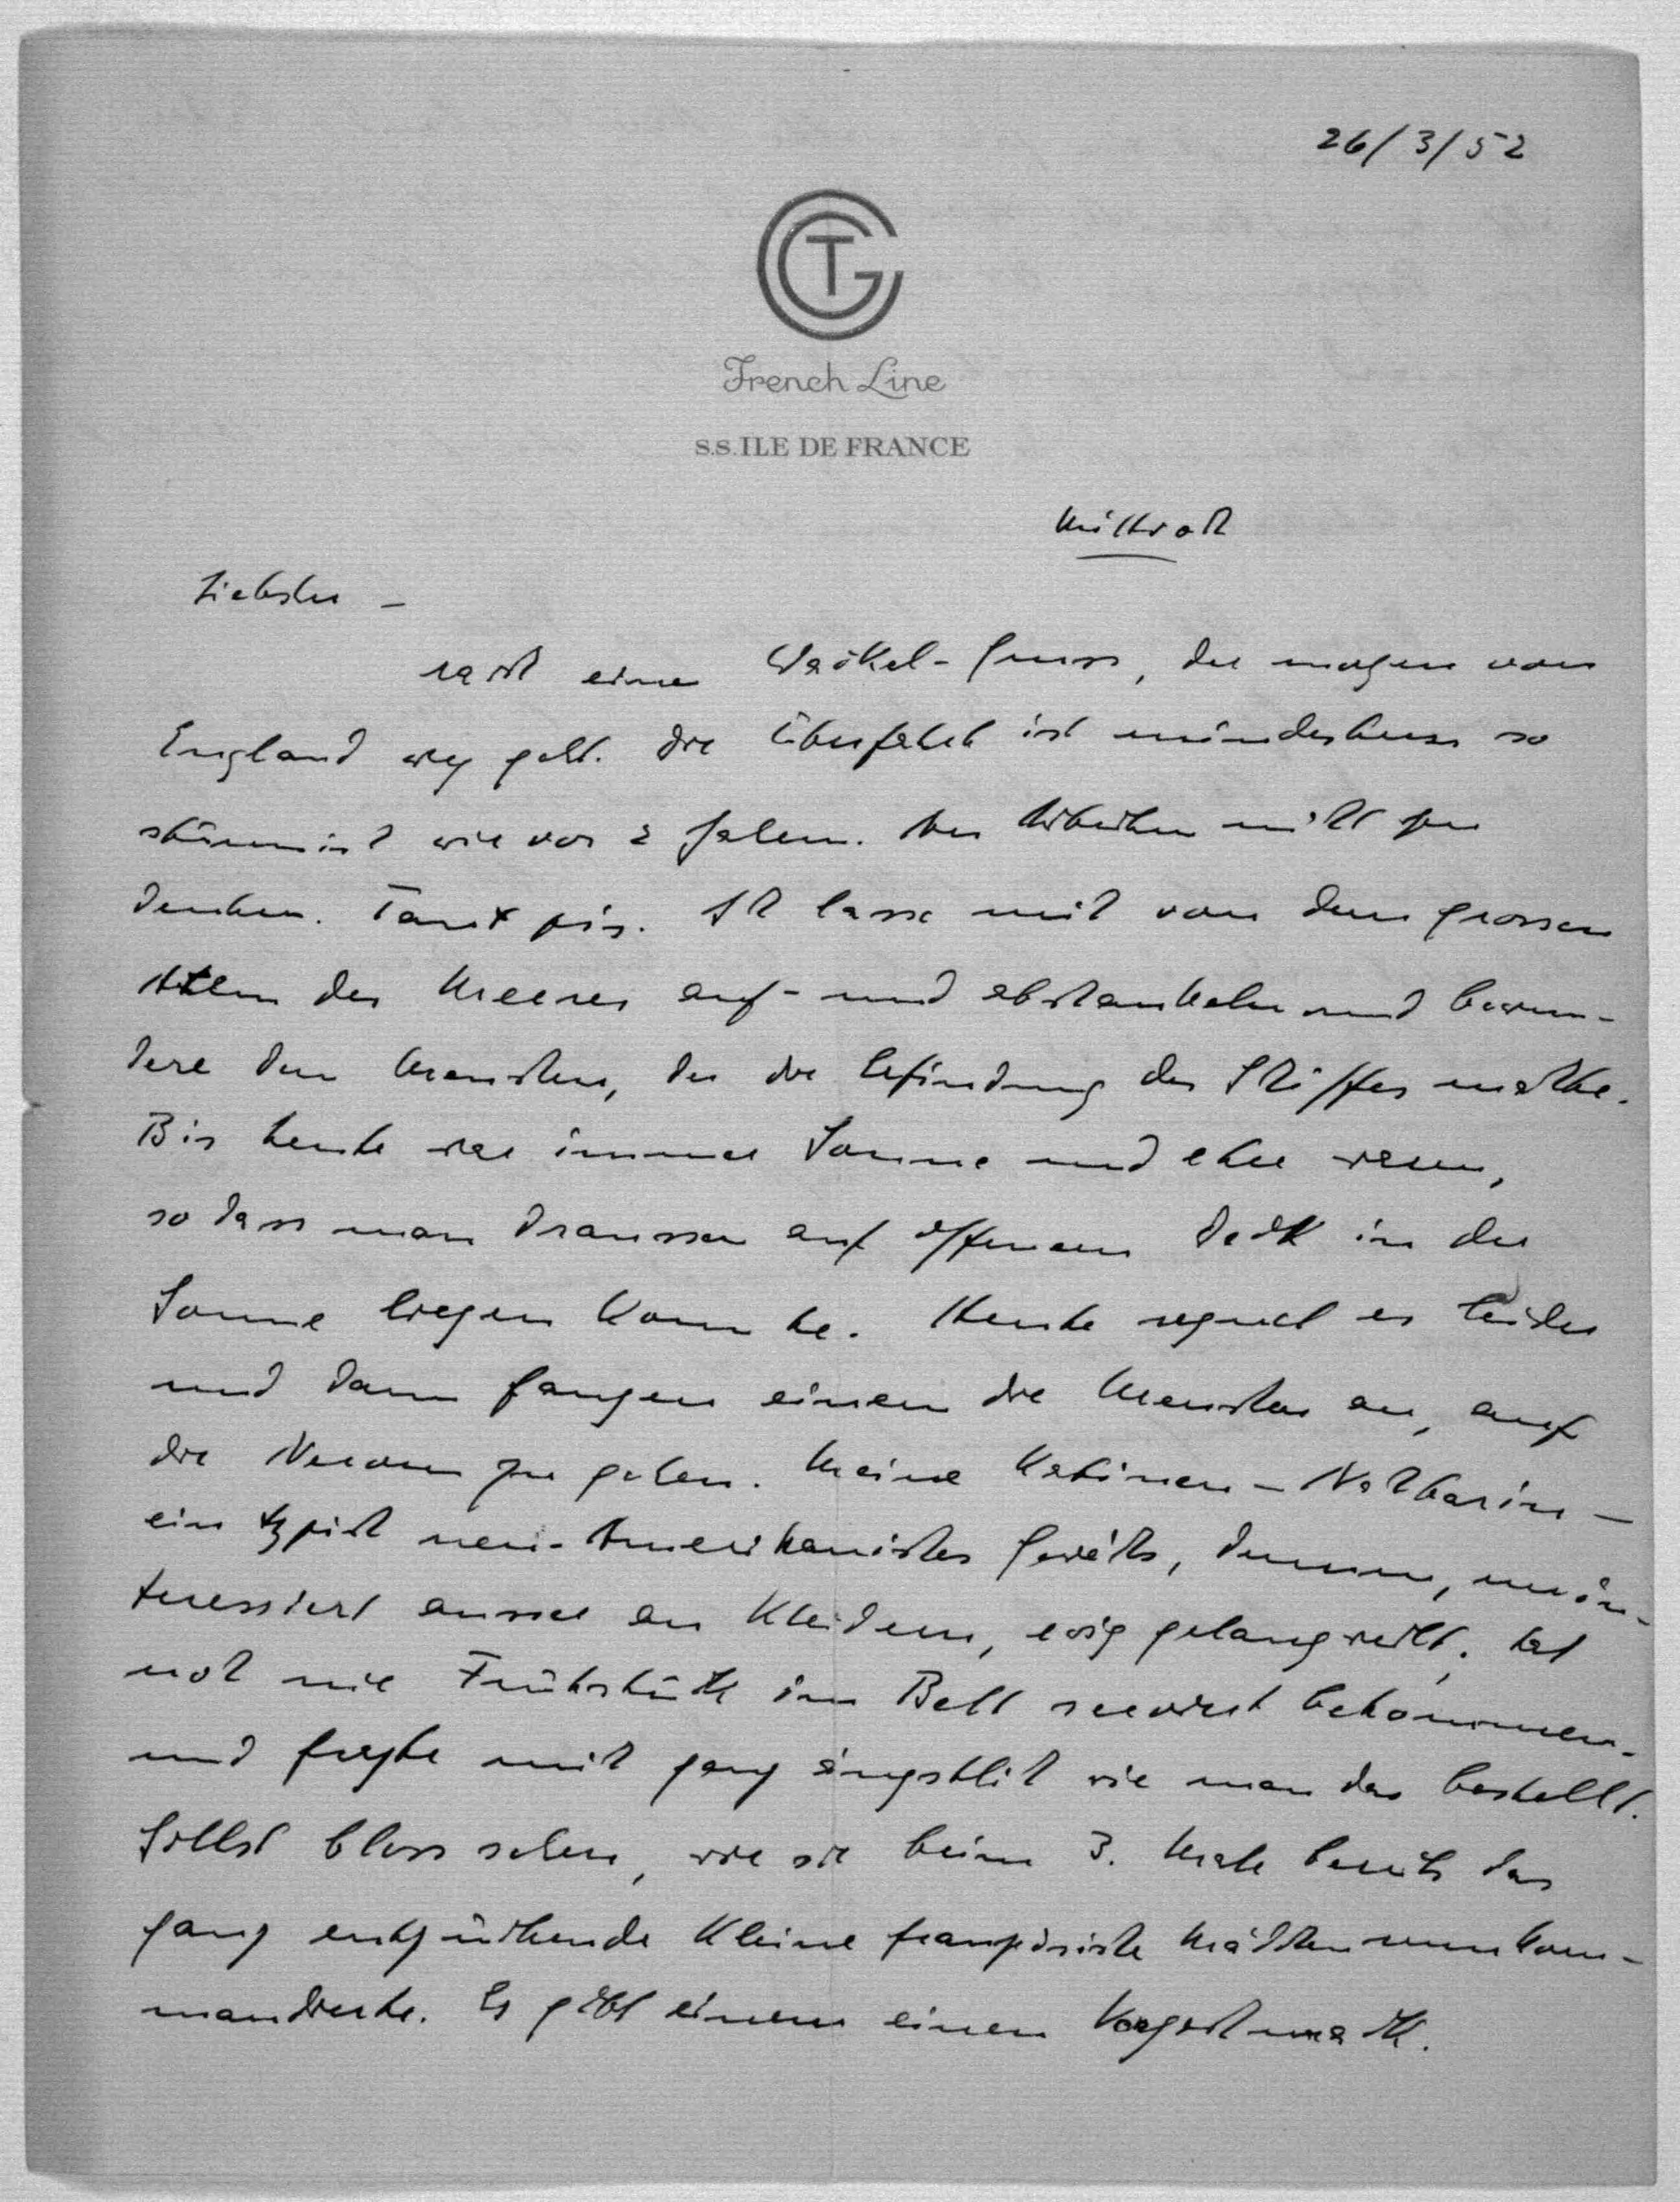 26/3/52
CGT
French Line
S.S. ILE DE FRANCE
Mittwoch
Liebster –
rasch einen Wackel-Gruss, der morgen von
England weg geht. Die Überfahrt ist mindestens so
stürmisch wie vor 2 Jahren. An Arbeiten nicht zu
denken. Tant pis. Ich lasse mich von dem grossen
Atem des Meeres auf- und abschaukeln und bewun-
dere den Menschen, der die Erfindung des Schiffes machte.
Bis heute war immer Sonne und eher warm,
so dass man draussen auf offenem Deck in der
Sonne liegen konnte. Heute regnet es leider
und dann fangen einem die Menschen an, auf
die Nerven zu gehen. Meine Kabinen-Nachbarin –
ein typisch neu-Amerikanisches Gewächs, dumm, unin-
teressiert ausser an Kleidern, ewig gelangweilt, hat
noch nie Frühstück im Bett serviert bekommen
und fragte mich ganz ängstlich wie man das bestellt.
Sollst bloss sehen, wie sie beim 3. Male bereits das
ganz entzückende kleine französische Mädchen rumkom-
mandierte. Es gibt einem einen Vorgeschmack.